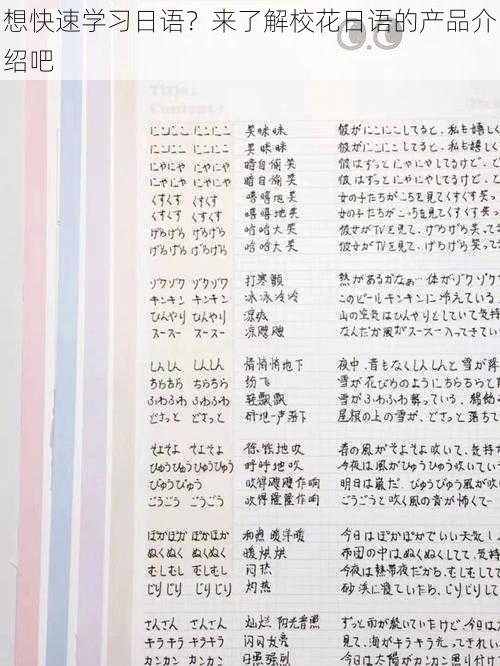 想快速学习日语？来了解校花日语的产品介
绍吧
Title:
Content:
にこにこ にこにこ 笑眯眯 彼がにこにこしてると、私も嬉しく
にこにこ にこにこ 笑眯眯 彼がにこにこしてると、私も嬉しく
にやにや にやにや 暗自偷笑 彼はずっとにやにやしてるけど、ど
にやにや にやにや 暗自偷笑 彼はずっとにやにやしてるけど、
くすくす くすくす 嘻嘻地笑 女の子たちがこっちを見てくすくす笑っ
くすくす くすくす 嘻嘻地笑 女の子たちがこっちを見てくすくす笑
げらげら げらげら 哈哈大笑 彼女がTVを見て、げらげら笑って
げらげら げらげら 哈哈大笑 彼女がTVを見て、げらげら笑
ゾクゾク ゾクゾク 打寒颤 熱があるかなぁ…体がゾクゾク
キンキン キンキン 冰冰冷冷 このビールキンキンに冷えている
ひんやり ひんやり 凉 山の空気はひんやりとしていて気持
スースー スースー 凉飕飕 なんだか風がスースー入ってきてい
しんしん しんしん 悄悄地下 夜中、音もなくしんしんと雪が降
ちらちら ちらちら 纷飞 雪が花びらのようにちらちらと
ふわふわ ふわふわ 轻飘飘 雪がふわふわ舞っている、
どさっと どさっと 一声落下 屋根の上の雪が、どさっと落ちて
そよそよ そよそよ 徐徐地吹 春の風がそよそよ吹いて、気持
ひゅうひゅう ひゅうひゅう 呼呼地吹 今夜は風がひゅうひゅう吹いてい
びゅうびゅう 吹得飕飕作响 明日は嵐だ、びゅうびゅう風が
ごうごう ごうごう 吹得隆隆作响 ごうごうと吹く風の音が怖くて
ぽかぽか ぽかぽか 和煦 暖洋洋 今日はぽかぽかでいい天気
ぬくぬく ぬくぬく 暖烘烘 布団の中はぬくぬくしてて、気持
むしむし むしむし 闷热 今夜は熱帯夜だから、むしむし
じりじり じりじり 灼热 砂浜に寝ていたら、じりじり
さんさん さんさん 灿烂 阳光普照 ずっと雨が続いていたけど、今日は
キラキラ キラキラ 闪闪发亮 見て、海がキラキラ光ってきれい
カンカン カンカン 日照强烈 今日は太陽がカンカン照り付けて